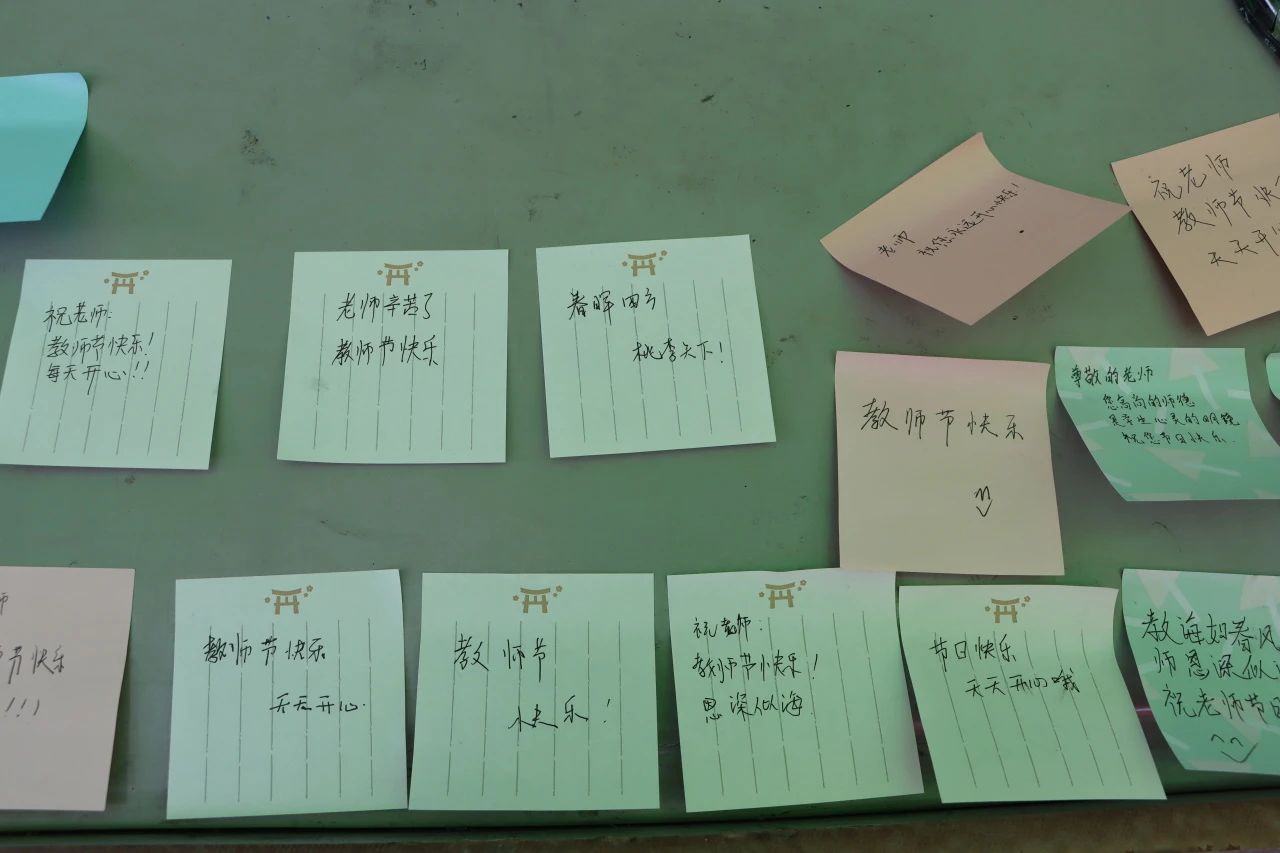 祝老师:
教师节快乐!
每天开心!!
老师辛苦了
教师节快乐
春晖四方
桃李天下!
老师
祝您永远开心快乐!
祝老师
教师节快
天天开
教师节快乐
尊敬的老师
您高尚的师德
是学生心灵的明镜
祝您节日快乐
师
节快乐
!!!
教师节快乐
天天开心.
教师节
快乐!
祝老师:
教师节快乐!
恩深似海
节日快乐
天天开心哦
教诲如春风
师恩深似
祝老师节日